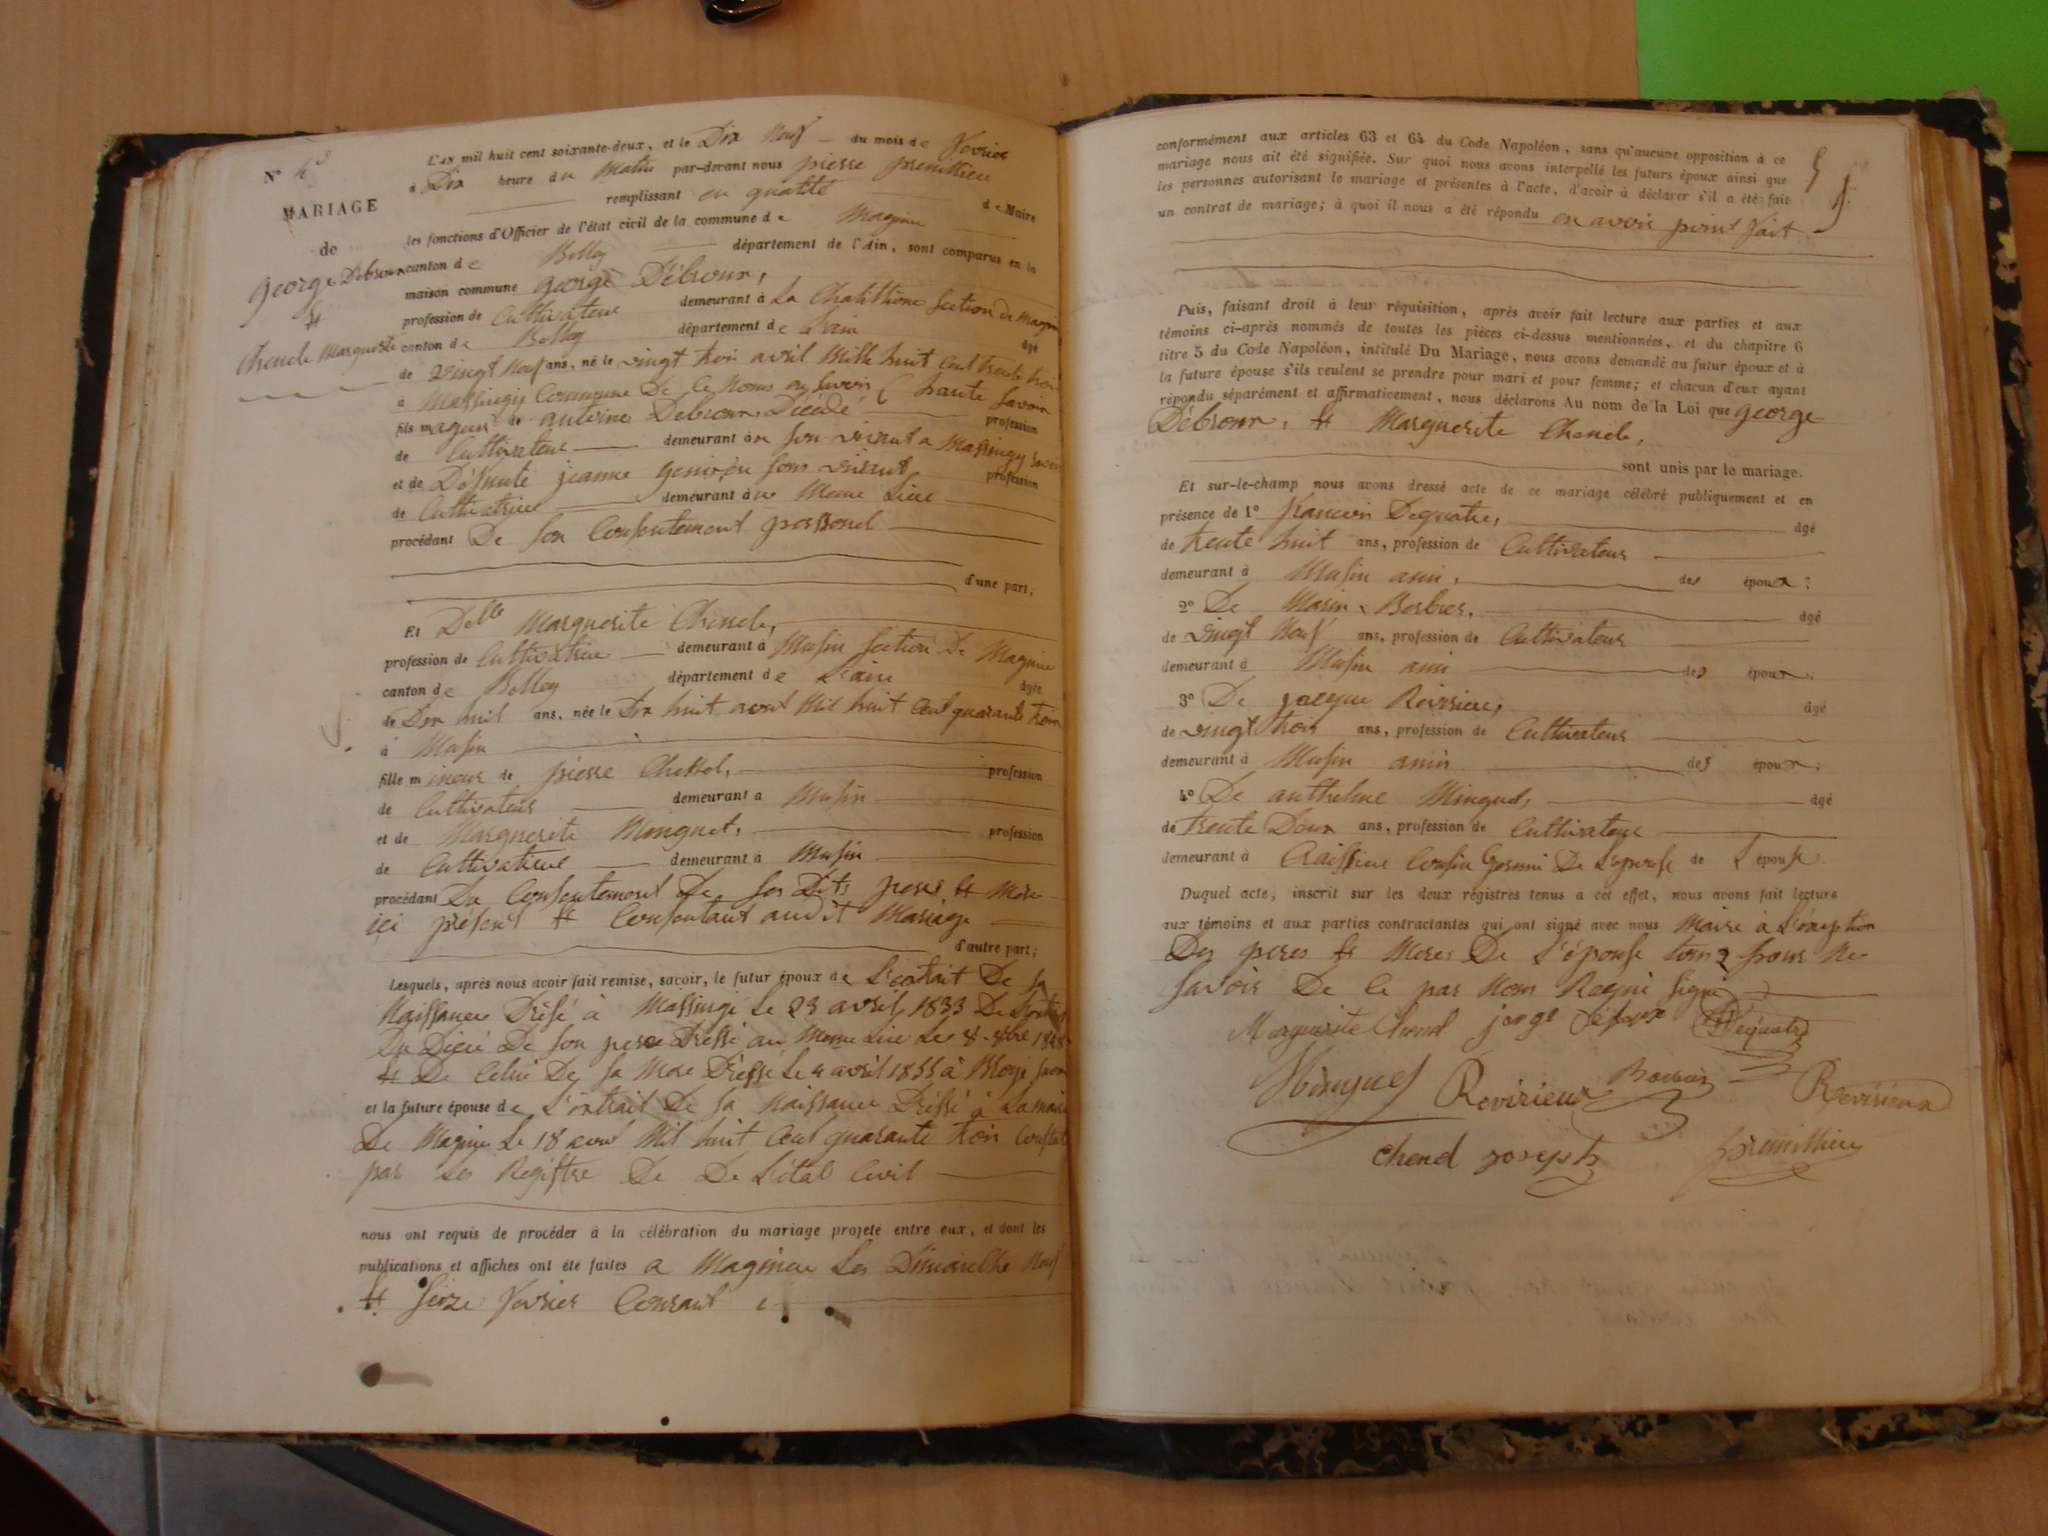 N° 4
MARIAGE
de
george Debroux
et
Chende Margueritte
L'an mil huit cent soixante-deux, et le Dix Neuf du mois de Fevrier
à Dix heure du Matin par-devant nous pierre premillieu
remplissant en qualité de Maire
les fonctions d'Officier de l'état civil de la commune de Magnieu
canton de Belley département de l'Ain, sont comparus en la
maison commune george Débroux,
profession de Cultivateur demeurant à La Section de magnieu
canton de Belley département de L'ain âgé
de vingt Neuf ans, né le vingt troi avril Mille huit Cent trente troi
à Massingy Commune De Ce Noms en Savoir ( haute Savoir
fils mageur de antoine Debroux Décédé profession
de Cultivateur demeurant à en Son vivant a Massingy
et de Défunte jeanne son vivant profession
de Cultivatrice demeurant à au Meme Lieu
procédant De Son Consentement personel
d'une part;
Et Delle Marguerite Chende,
profession de Cultivatrice demeurant à Musin Section De Magnieu
canton de Belley département de L'ain âgée
de Dix huit ans, née le Dix huit avout Mil huit Cent quarante troi
à Musin
fille mineur de pierre profession
de Cultivateur demeurant à Musin
et de Marguerite Minguet, profession
de Cultivatrice demeurant à Musin
procédant Du Consentement De Ses Dits peres et Mere
ici présent et Consentant audit Mariage
d'autre part;
Lesquels, après nous avoir fait remise, savoir, le futur époux de L'extrait De Sa
Naissance Dréssé à Massingi Le 23 avril 1833 De
Du Décé De Son pere Dréssé au Meme Lieu Le 8
et De Celui De Sa Mere Dréssé Le 4 avril 1855 à
et la future épouse de L'extrait De Sa Naissance Dréssé à La mairie
De Magnieu Le 18 avout Mil huit Cent quarante troi
par Les Registre De De L'état Civil
nous ont requis de procéder à la célébration du mariage projeté entre eux, et dont les
publications et affiches ont été faites a Magnieu Les Dimanche Neuf
et Seize Fevrier Courant
conformément aux articles 63 et 64 du Code Napoléon, sans qu'aucune opposition à ce
mariage nous ait été signifiée. Sur quoi nous avons interpellé les futurs époux ainsi que
les personnes autorisant le mariage et présentes à l'acte, d'avoir à déclarer s'il a été fait
un contrat de mariage; à quoi il nous a été répondu en avoir point fait
Puis, faisant droit à leur réquisition, après avoir fait lecture aux parties et aux
témoins ci-après nommés de toutes les pièces ci-dessus mentionnées, et du chapitre 6
titre 5 du Code Napoléon, intitulé Du Mariage, nous avons demandé au futur époux et à
la future épouse s'ils veulent se prendre pour mari et pour femme; et chacun d'eux ayant
répondu séparément et affirmativement, nous déclarons Au nom de la Loi que george
Débroux, et Marguerite Chende,
sont unis par le mariage.
Et sur-le-champ nous avons dressé acte de ce mariage célébré publiquement et en
présence de 1° Francois Dequatre, âgé
de trente huit ans, profession de Cultivateur
demeurant à Musin ami, des époux;
2° De Marin Berbier, âgé
de vingt Neuf ans, profession de Cultivateur
demeurant à Musin ami des époux;
3° De jacque Revirieux, âgé
de vingt trois ans, profession de Cultivateur
demeurant à Musin amis des époux;
4° De anthelme Minguet, âgé
de trente Deux ans, profession de Cultivateur
demeurant à Craissieu Cousin Germin De L'épouse de L'épouse
Duquel acte, inscrit sur les deux registres tenus à cet effet, nous avons fait lecture
aux témoins et aux parties contractantes qui ont signé avec nous Maire à L'éxeption
Des peres et Meres De L'épouse tous 2 pour Ne
Savoir De Ce par Nous Requi Signé
Marguerite Chend jorge Dequatre
Minguet Revirieux Revirieux
Chend joseph premillieu